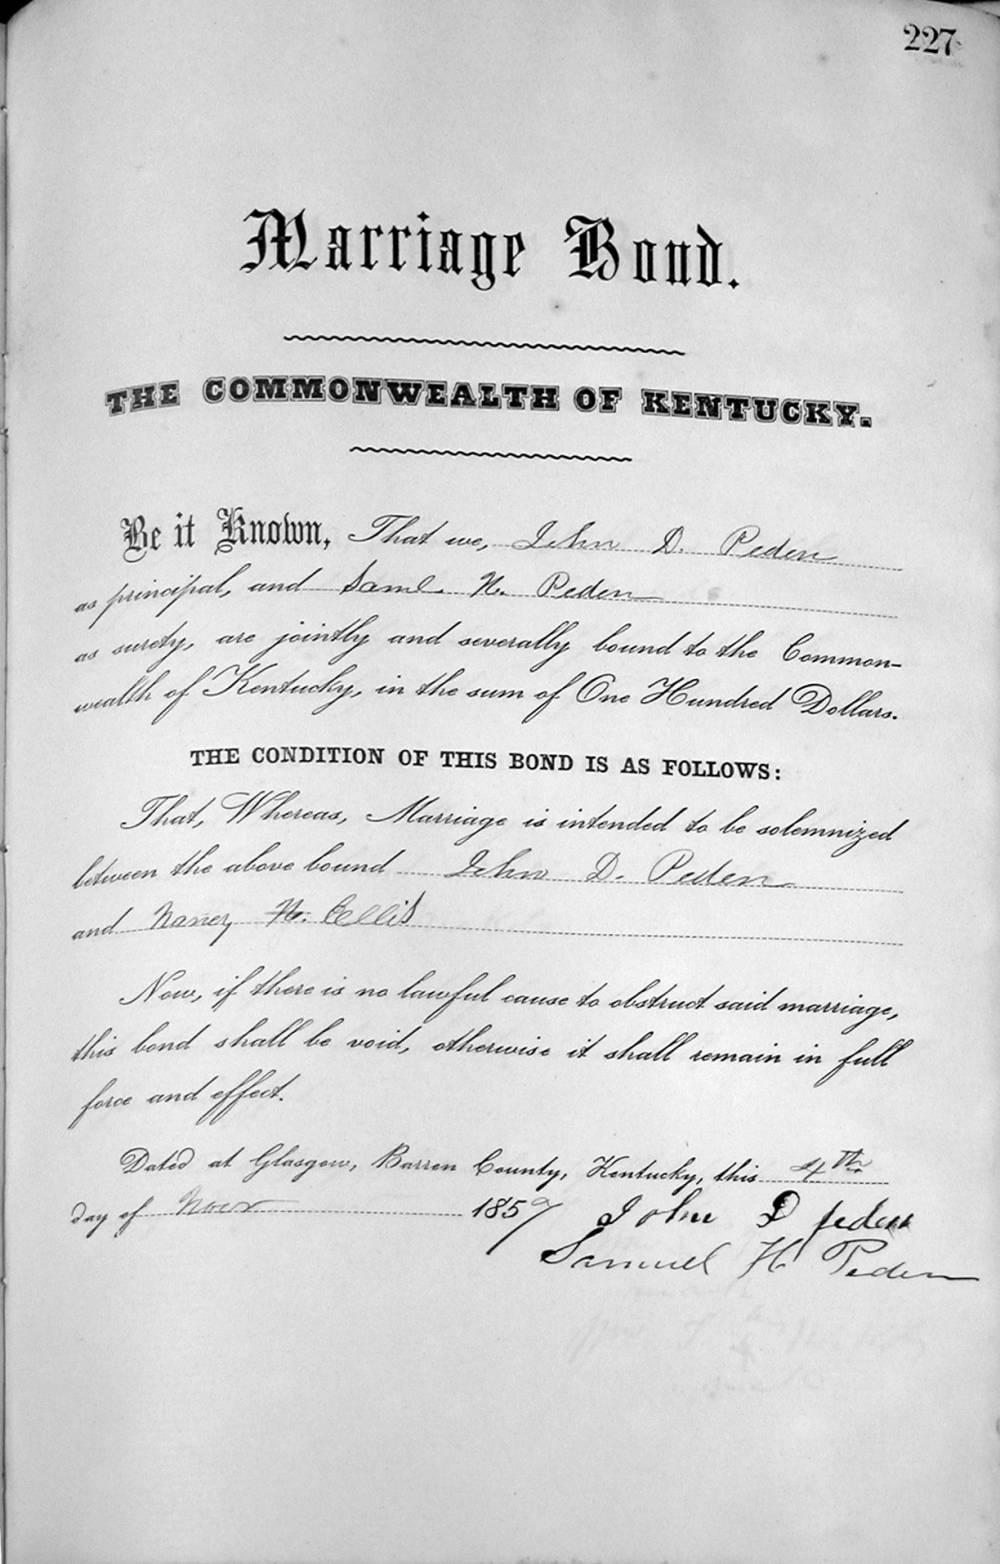 227
Marriage Bond.
THE COMMONWEALTH OF KENTUCKY.
Be it Known, That we, John D. Peden
as principal, and Saml. H. Peden
as surety, are jointly and severally bound to the Common-
wealth of Kentucky, in the sum of One Hundred Dollars.
THE CONDITION OF THIS BOND IS AS FOLLOWS:
That, Whereas, Marriage is intended to be solemnized
between the above bound John D. Peden
and Nancy H. Ellis
Now, if there is no lawful cause to obstruct said marriage,
this bond shall be void, otherwise it shall remain in full
force and effect.
Dated at Glasgow, Barren County, Kentucky, this 4th
day of Novr 1859 John D peden
Samuel H Peden